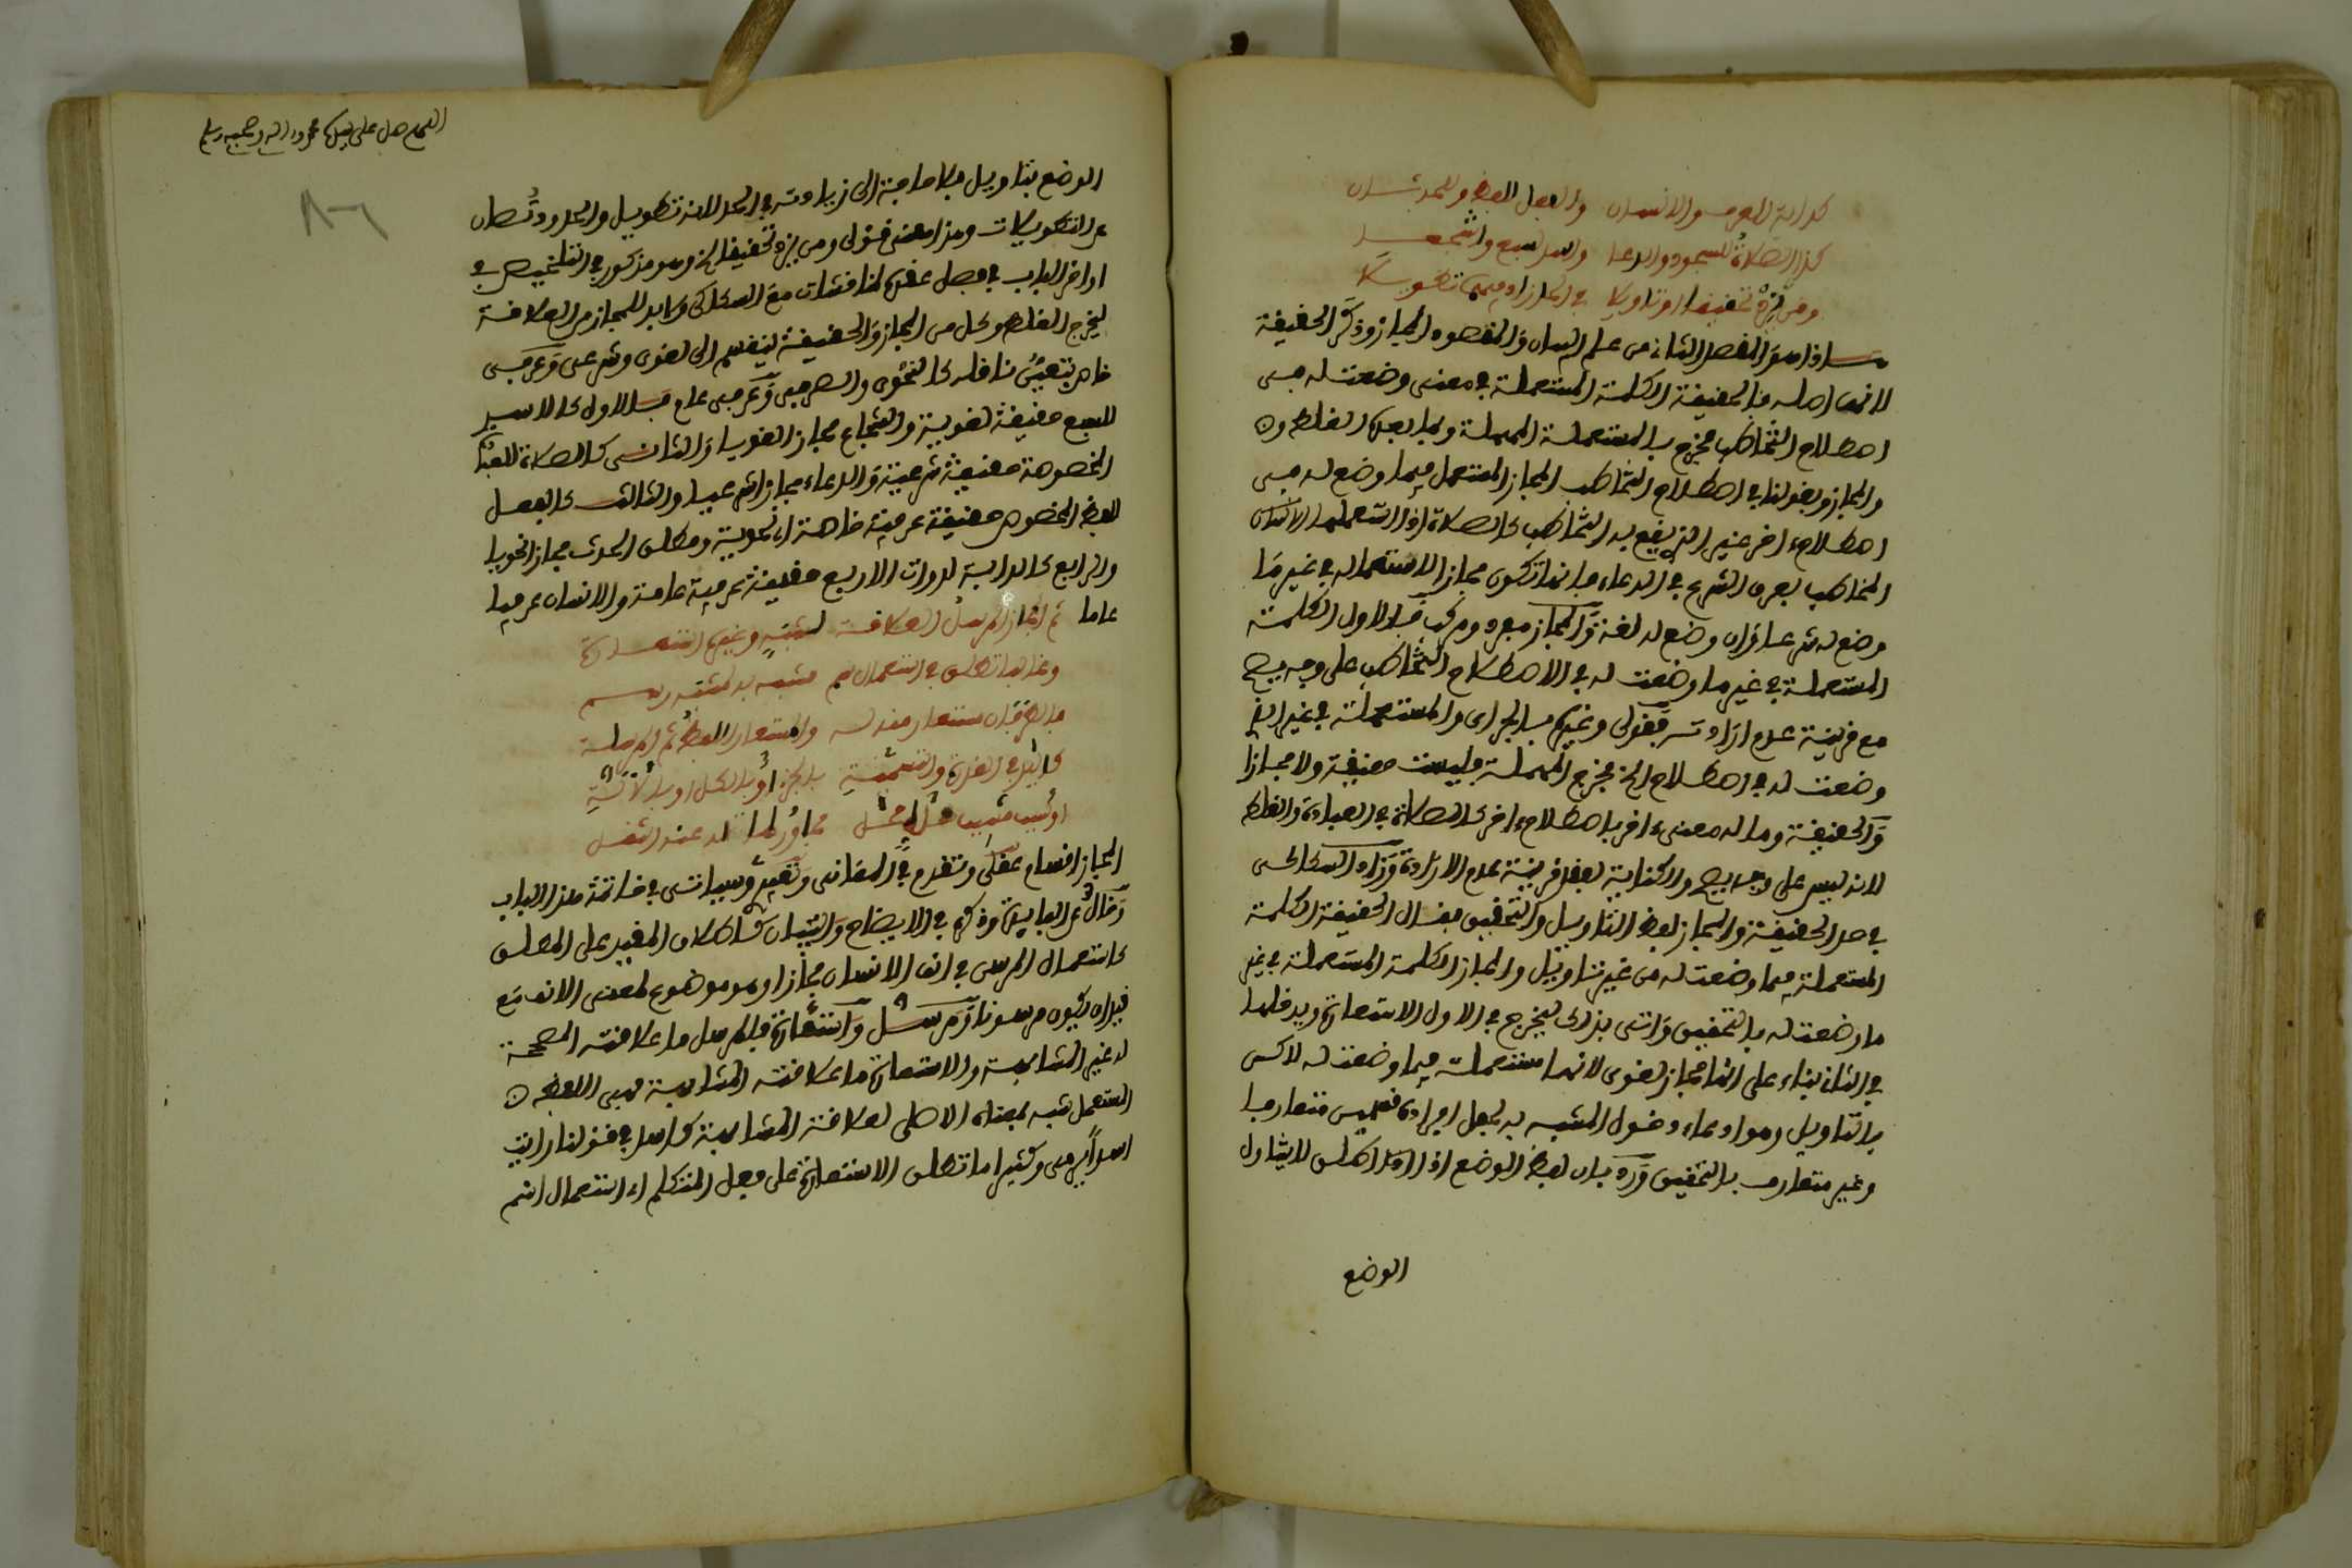 كدابة للعرف والانسان والفعل للفظ وللحدثان
كذا الصلاة للسجود والدعا واسد لسبع وشجعا
ومن يزد تحقيقا او تاويلا في الحد زاد فيهما تطويلا
هذا هو المقصد الثاني من علم البيان والمقصود المجاز وذكر الحقيقة
لانها اصله فالحقيقة الكلمة المستعملة في معنى وضعت له في
اصطلاح التخاطب فخرج بالمستعملة المهملة وبما بعدها الغلط
والمجاز وبقولنا في اصطلاح التخاطب المجاز المستعمل فيما وضع له في
اصطلاح اخر غير الذي يقع به التخاطب كالصلاة اذا استعملها
المخاطب بعرف الشرع في الدعاء فانها تكون مجازا لاستعماله في غير ما
وضع له شرعا وان وضع له لغة والمجاز مفرد ومركب فالاول الكلمة
المستعملة في غير ما وضعت له في الاصطلاح التخاطب على وجه يصح
مع قرينة عدم ارادته فقولي وغيرها بالجر اي والمستعملة في غير الذي
وضعت له في اصطلاح الخ فخرج المهملة فليست حقيقة ولا مجازا
والحقيقة وما له معنى اخر باصطلاح اخر كالصلاة في العبادة والغلط
لانه ليس على وجه يصح والكناية لفقد قرينة عدم الارادة وزاد السكاكي
في حد الحقيقة والمجاز لفظ التاويل والتحقيق فقال الحقيقة الكلمة
المستعملة فيما وضعت له من غير تاويل والمجاز الكلمة المستعملة في غير
ما وضعت له بالتحقيق واتى بذلك ليخرج في الاول الاستعارة ويدخلها
في الثاني بناء على انها مجاز لغوي لانها مستعملة فيما وضعت له لاكن
بالتاويل وهو ادعاء دخول المشبه به بجعل افراده قسمين متعارفا
وغير متعارف بالتحقيق ورد بان لفظ الوضع اذا اطلق لا يتناول
الوضع
اللهم صل على سيدنا محمد واله وصحبه وسلم
الوضع بتاويل فلا حاجة الى زيادته في الحد لانه تطويل والحدود تصان
عن التطويلات وهذا معنى قولي ومن يزد تحقيقا الخ وهو مذكور في التلخيص في
اواخر الباب في فصل عقده لمناقشات مع السكاكي ولا بد للمجاز من العلاقة
ليخرج الغلط وكل من المجاز والحقيقة ينقسم الى لغوي وشرعي وعرفي
خاص يتعين ناقله كالنحوي والصرفي وعرفي عام فالاول كالاسد
للسبع حقيقة لغوية والشجاع مجاز لغويا والثاني كالصلاة للعبادة
المخصوصة حقيقة شرعية والدعاء مجازا شرعيا والثالث كالفعل
للفظ المخصوص حقيقة عرفية خاصة اي نحوية ومطلق الحدث مجازا نحويا
والرابع كالدابة لذوات الاربع حقيقة عرفية عامة والانسان عرفيا
عاما ثم المجاز المرسل العلاقة لشبه وغيرها استعارة
وغالبا تطلق في استعمال سم مشبه به لمشبه رسم
فالطرفان مستعار منه له والمستعار اللفظ ثم المرسله
كاليد في القدرة والتسمية بالجزء او بالكل او بالآلية
او سبب مسبب حال محل مجاور كذا له عند النقل
المجاز اقسام عقلي وتقدم في المعاني وسياتي في خاتمة هذا الباب
وخال عن الفايدة وذكر في الايضاح والتبيان كاطلاق المقيد على المطلق
كاستعمال المرسن في انف الانسان مجازا وهو موضوع لمعنى الانف مع
قيد ان يكون مرسونا ومرسل واستعارة فالمرسل ما علاقته المصححة
له غير المشابهة والاستعارة ما علاقته المشابهة فهي اللفظ
المستعمل شبه بمعناه الاصلي لعلاقة المشابهة كاسد في قولنا رايت
اسدا يرمي وكثيرا ما تطلق الاستعارة على فعل المتكلم اي استعمال اسم